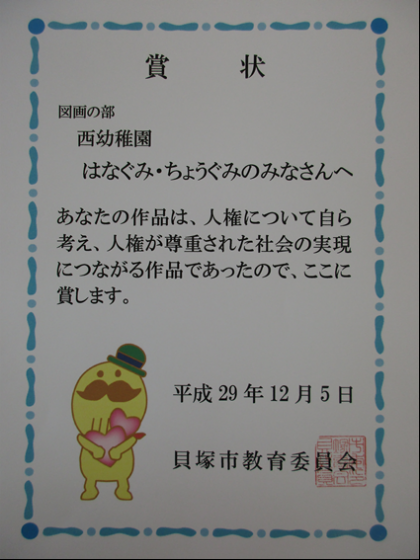 賞状
図画の部
西幼稚園
はなぐみ・ちょうぐみのみなさんへ
あなたの作品は、人権について自ら
考え、人権が尊重された社会の実現
につながる作品であったので、ここに
賞します。
平成29年12月5日
貝塚市教育委員会